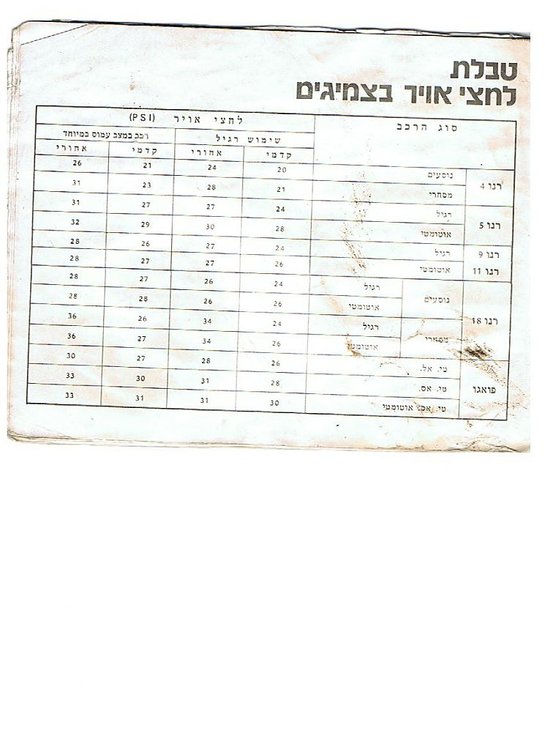 טבלת
לחצי אויר בצמיגים
סוג הרכב לחצי אויר (PSI)
שימוש רגיל רכב במצב עמוס במיוחד
קדמי אחורי קדמי אחורי
רנו 4 נוסעים 20 24 21 26
מסחרי 21 28 23 31
רנו 5 רגיל 24 27 27 31
אוטומטי 28 30 29 32
רנו 9 רגיל 24 27 26 28
רנו 11 אוטומטי 26 27 27 28
רנו 18 נוסעים רגיל 24 26 27 28
אוטומטי 26 26 28 28
מסחרי רגיל 24 34 26 36
אוטומטי 26 34 27 36
פואגו טי. אל. 26 28 27 30
טי. אס. 28 31 30 33
טי. אס. אוטומטי 30 31 31 33